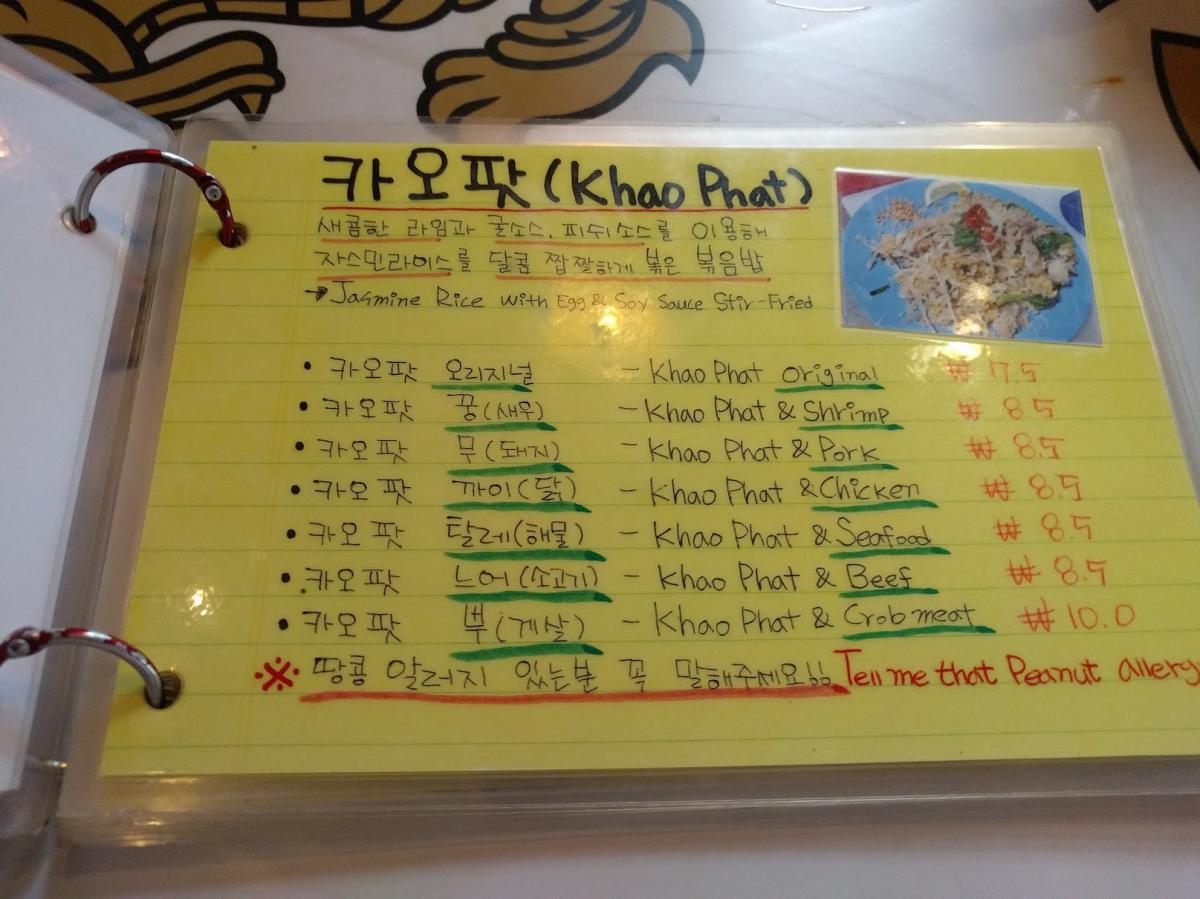 카오팟 (Khao Phat)
새콤한 라임과 굴소스, 피쉬소스를 이용해
자스민라이스를 달콤 짭짤하게 볶은 볶음밥
→ Jasmine Rice with Egg & Soy Sauce Stir-Fried
• 카오팟 오리지널 - Khao Phat original ₩ 7.5
• 카오팟 꿍(새우) - Khao Phat & Shrimp ₩ 8.5
• 카오팟 무(돼지) - Khao Phat & Pork ₩ 8.5
• 카오팟 까이(닭) - Khao Phat & Chicken ₩ 8.5
• 카오팟 탈레(해물) - Khao Phat & Seafood ₩ 8.5
• 카오팟 느어(소고기) - Khao Phat & Beef ₩ 8.5
• 카오팟 뿌(게살) - Khao Phat & Crob meat ₩ 10.0
※ 땅콩 알러지 있는분 꼭 말해주세요!! Tell me that Peanut allergy